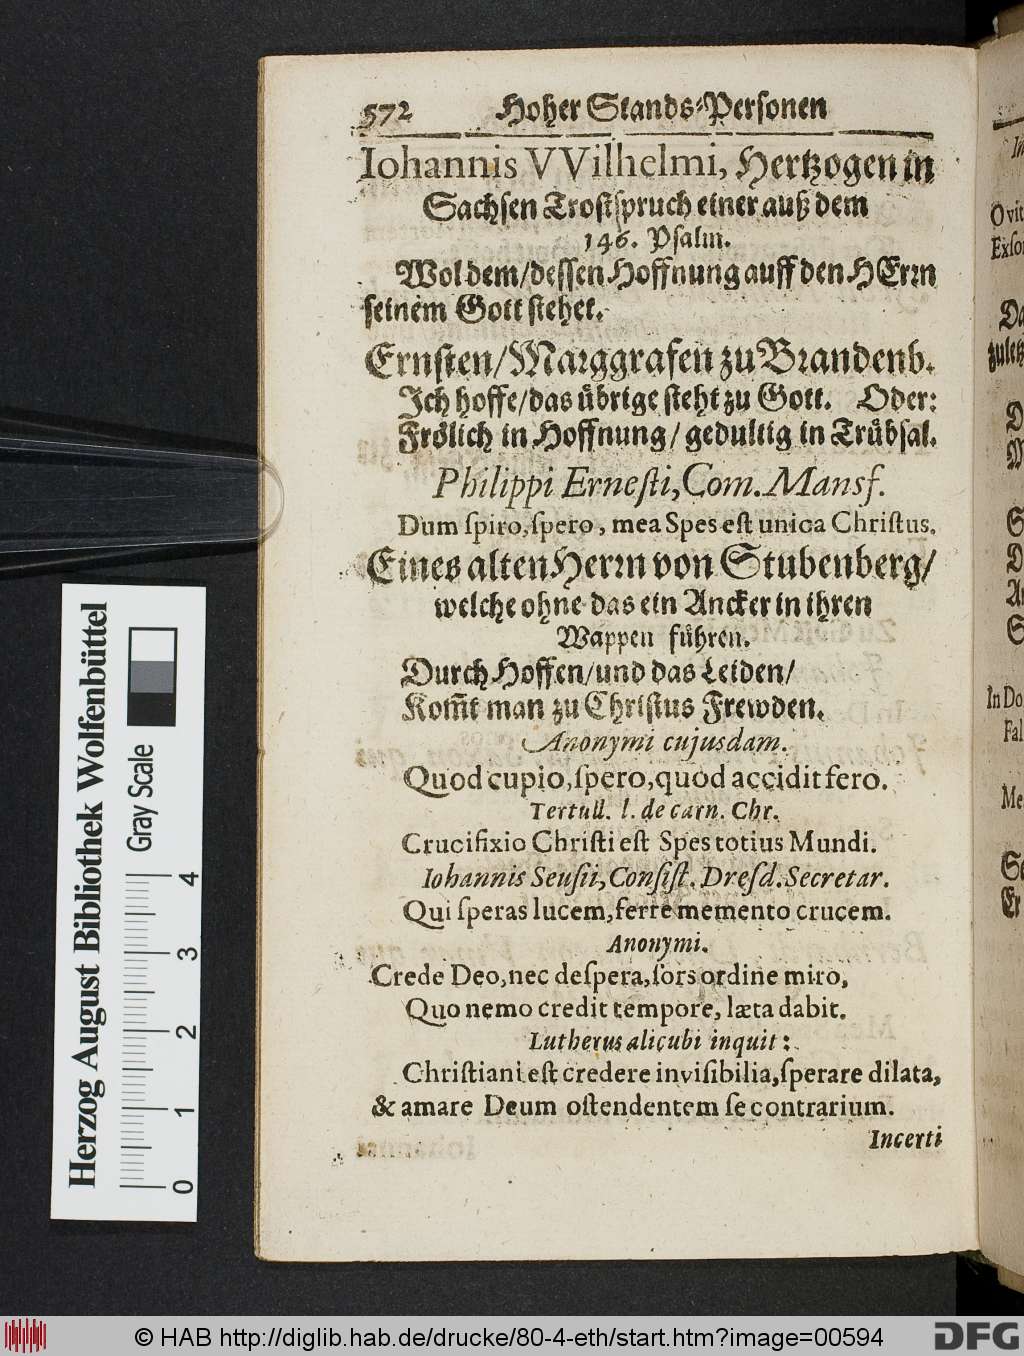 572 Hoher Stands-Personen
Iohannis VVilhelmi, Hertzogen in
Sachsen Trostspruch einer auß dem
146. Psalm.
Wol dem/dessen Hoffnung auff den HErrn
seinem Gott stehet.
Ernsten/Marggrafen zu Brandenb.
Ich hoffe/das übrige steht zu Gott. Oder:
Frölich in Hoffnung/ gedultig in Trübsal.
Philippi Ernesti, Com. Mansf.
Dum spiro, spero, mea Spes est unica Christus.
Eines alten Herrn von Stubenberg/
welche ohne das ein Ancker in ihren
Wappen führen.
Durch Hoffen/und das Leiden/
Kom̃t man zu Christus Frewden.
Anonymi cujusdam.
Quod cupio, spero, quod accidit fero.
Tertull. l. de carn. Chr.
Crucifixio Christi est Spes totius Mundi.
Iohannis Seusii, Consist. Dresd. Secretar.
Qui speras lucem, ferre memento crucem.
Anonymi.
Crede Deo, nec despera, sors ordine miro,
Quo nemo credit tempore, læta dabit.
Lutherus alicubi inquit:
Christiani est credere invisibilia, sperare dilata,
& amare Deum ostendentem se contrarium.
Incerti
Herzog August Bibliothek Wolfenbüttel
Gray Scale
0 1 2 3 4
© HAB http://diglib.hab.de/drucke/80-4-eth/start.htm?image=00594
DFG